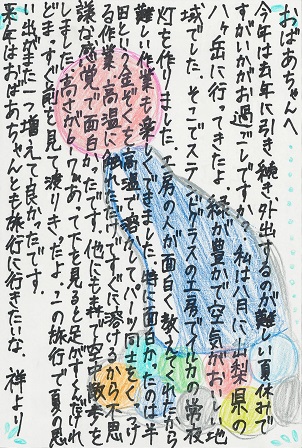 おばあちゃんへ
今年は去年に引き続き外出するのが難しい夏休みで
すがいかがお過ごしですか。私は八月に山梨県の
八ヶ岳に行ってきたよ。緑が豊かで空気がおいしい地
域でした。そこでステンドグラスの工房でイルカの常夜
灯を作りました。工房の人が面白く教えてくれたから
難しい作業も楽しくできました。特に面白かったのは半
田という金ぞくを高温で溶かしてパーツ同士をくっつけ
る作業。高温に触れただけですぐに溶けるから不思
議な感覚で面白かったです。他にも森で空中散歩を
しました。高さが
あって下を見ると足がすくんだけれ
ど、まっすぐ前を見て渡りきったよ。この旅行で夏の思
い出がまた一つ増えて良かったです。
来年はおばあちゃんとも旅行に行きたいな。 祥より